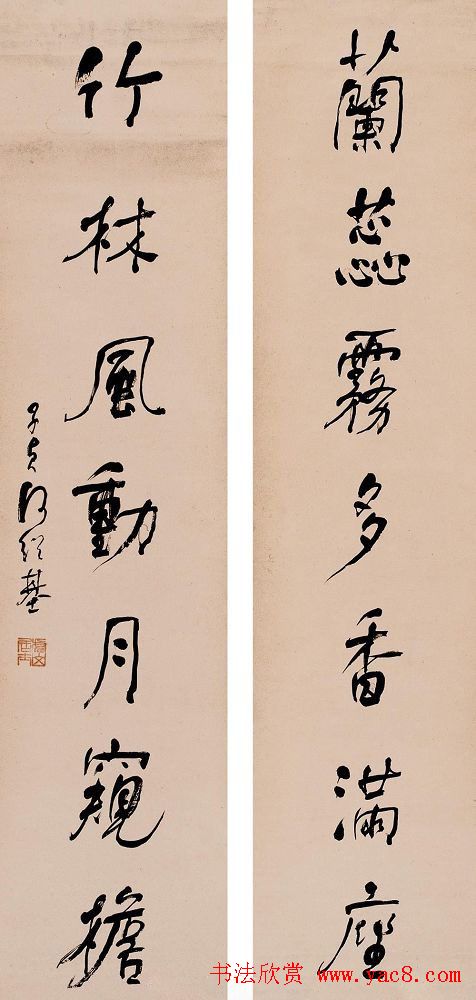 蘭蕊霧多香滿座
竹林風動月窺檐
子貞何紹基
书法欣赏 www.yac8.com